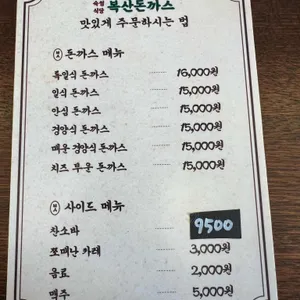 숙성
식당 복산돈까스
맛있게 주문하시는 법
돈까스 메뉴
독일식 돈까스 16,000원
일식 돈까스 15,000원
안심 돈까스 15,000원
경양식 돈까스 15,000원
매운 경양식 돈까스 15,000원
치즈 푸운 돈까스 15,000원
사이드 메뉴
찬소바 9500
쪼매난 카레 3,000원
음료 2,000원
맥주 5,000원